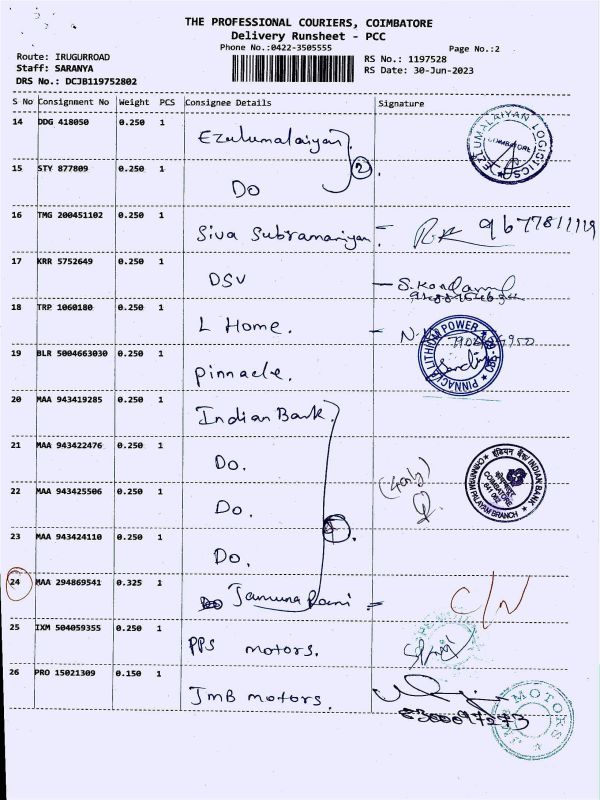 THE PROFESSIONAL COURIERS, COIMBATORE
Delivery Runsheet - PCC
Phone No.:0422-3505555
Page No.:2
Route: IRUGURROAD
Staff: SARANYA
DRS No.: DCJB119752802
RS No.: 1197528
RS Date: 30-Jun-2023
S No Consignment No Weight PCS Consignee Details Signature
14 DDG 418050 0.250 1 Ezulumalaiyan
EZULUMALAIYAN LOGISTICS COIMBATORE
15 STY 877809 0.250 1 Do 2
16 TMG 200451102 0.250 1 Siva Subramaniyan
17 KRR 5752649 0.250 1 DSV
18 TRP 1060180 0.250 1 L Home.
19 BLR 5004663030 0.250 1 Pinnacle.
PINNACLE LITHIUM POWER
20 MAA 943419285 0.250 1 Indian Bank.
21 MAA 943422476 0.250 1 Do.
22 MAA 943425506 0.250 1 Do.
इंडियन बैंक/INDIAN BANK
COIMBATORE
641 062
CHINNIAM PALAYAM BRANCH
23 MAA 943424110 0.250 1 Do.
24 MAA 294869541 0.325 1 Jamuna Rani = C/N
25 IXM 504059355 0.250 1 PPS motors.
26 PRO 15021309 0.150 1 JMB motors.
MOTORS